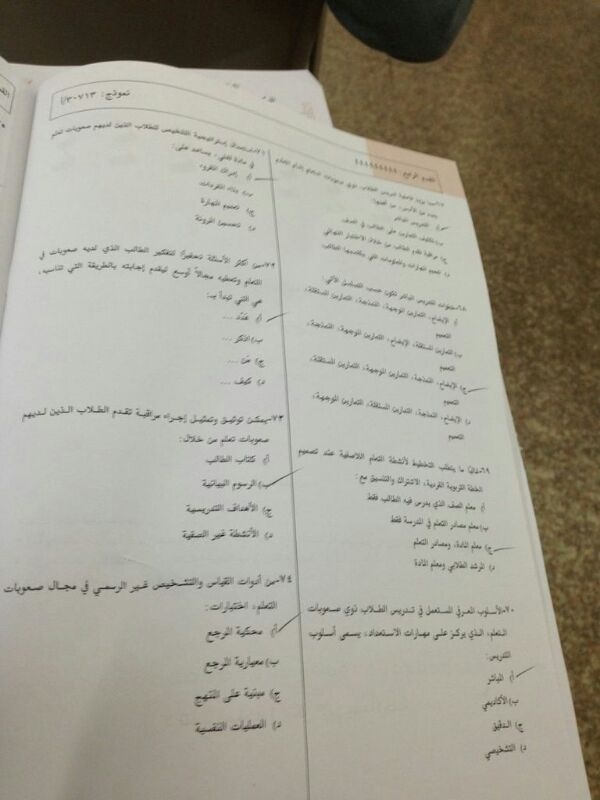 نموذج: ٣٠٧١٣/أ
القسم الرابع
التدريس المباشر
٦٨-خطوات التدريس المباشر تكون حسب التسلسل الآتي:
أ) الإيضاح، التمارين الموجهة، النمذجة، التمارين المستقلة،
التعميم
ب) التمارين المستقلة، الإيضاح، التمارين الموجهة، النمذجة،
التعميم
ج) الإيضاح، النمذجة، التمارين الموجهة، التمارين المستقلة،
التعميم
د) الإيضاح، النمذجة، التمارين المستقلة، التمارين الموجهة،
التعميم
٦٩-غالبًا ما يتطلب التخطيط لأنشطة التعلم اللاصفية عند تصميم
الخطة التربوية الفردية، الاشتراك والتنسيق مع:
أ) معلم الصف الذي يدرس فيه الطالب فقط
ب) معلم مصادر التعلم في المدرسة فقط
ج) معلم المادة، ومصادر التعلم
د) المرشد الطلابي ومعلم المادة
٧٠-الأسلوب المعرفي المستعمل في تدريس الطلاب ذوي صعوبات
التعلم، الذي يركز على مهارات الاستعداد، يسمى أسلوب
التدريس:
أ) المباشر
ب) الأكاديمي
ج) الدقيق
د) التشخيصي
إستراتيجية التلخيص للطلاب الذين لديهم صعوبات تعلم
يساعد على:
ب) بناء المفردات
ج) تعميم المهارة
د) تحسين المرونة
٧٢-من أكثر الأسئلة تحفيزًا لتفكير الطالب الذي لديه صعوبات في
التعلم وتعطيه مجالاً أوسع ليقدم إجابته بالطريقة التي تناسبه،
هي التي تبدأ بـ:
أ) عدّد ...
ب) اذكر ...
ج) من ...
د) كيف ...
٧٣-يمكن توثيق وتمثيل إجراء مراقبة تقدم الطلاب الذين لديهم
صعوبات تعلم من خلال:
أ) كتاب الطالب
ب) الرسوم البيانية
ج) الأهداف التدريسية
د) الأنشطة غير الصفية
٧٤-من أدوات القياس والتشخيص غير الرسمي في مجال صعوبات
التعلم، اختبارات:
أ) محكية المرجع
ب) معيارية المرجع
ج) مبنية على المنهج
د) العمليات النفسية